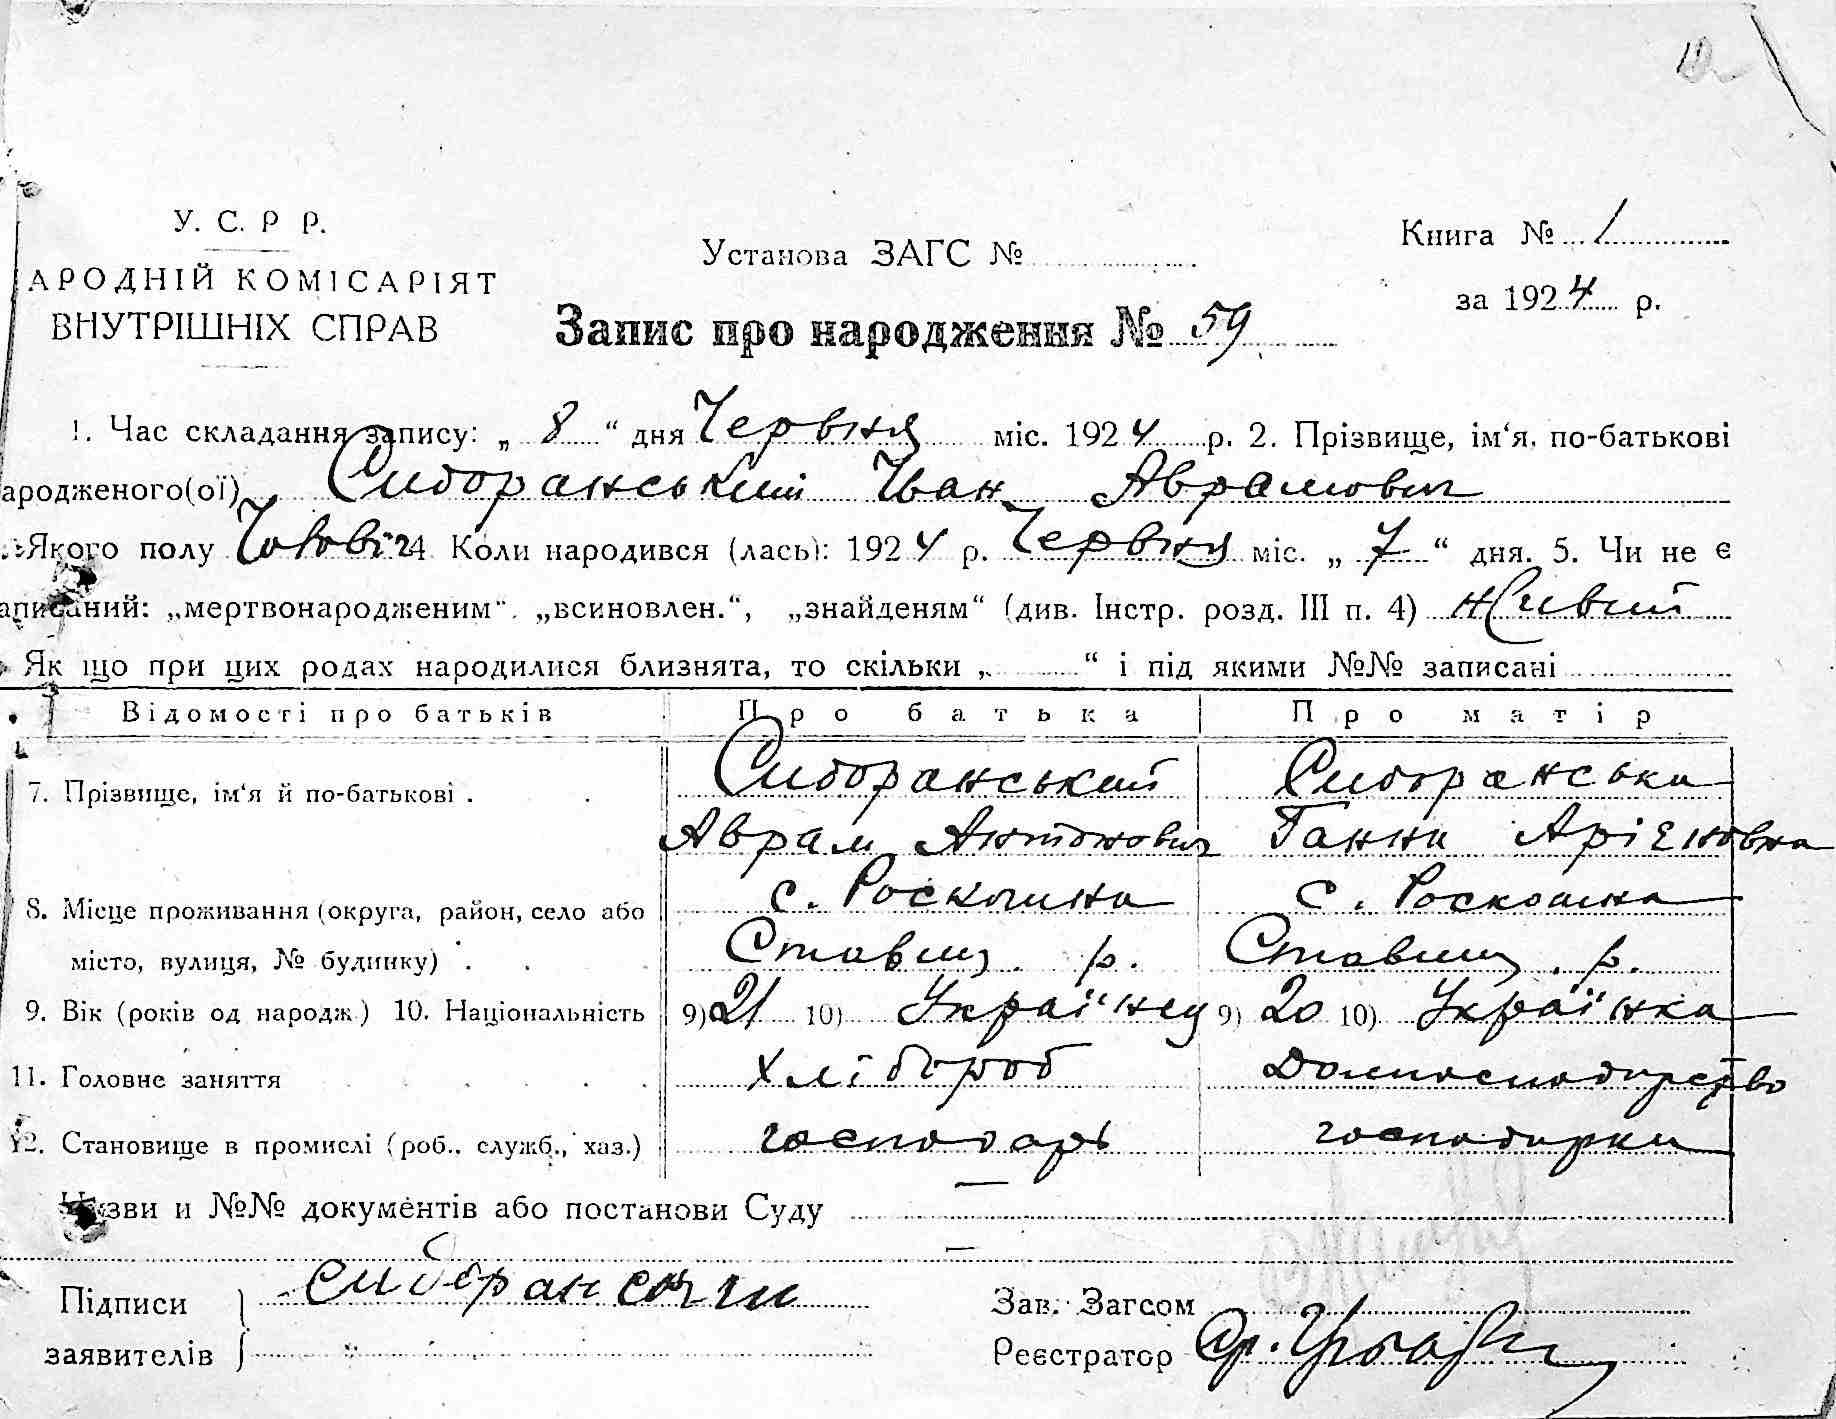 У. С. Р Р.
АРОДНІЙ КОМІСАРІЯТ
ВНУТРІШНІХ СПРАВ
Установа ЗАГС №
Книга № 1
за 1924 р.
Запис про народження № 59
1. Час складання запису: „ 8 “ дня Червня міс. 1924 р. 2. Прізвище, ім‘я, по-батькові
ародженого(ої) Сиборанський Іван Аврамович
Якого полу Чоловіч 4 Коли народився (лась): 1924 р. Червня міс. „ 7 “ дня. 5. Чи не є
аписаний: „мертвонародженим“. „всиновлен.“, „знайденям“ (див. Інстр. розд. III п. 4) живий
Як що при цих родах народилися близнята, то скільки „ “ і під якими №№ записані
Відомості про батьків Про батька Про матір
7. Прізвище, ім‘я й по-батькові . Сиборанський Аврам Антонович Сиборанська Ганна
8. Місце проживання (округа, район, село або місто, вулиця, № будинку) с. Роскошна Ставищ. р. с. Роскошна Ставищ. р.
9. Вік (років од народж.) 10. Національність 9) 21 10) Українец 9) 20 10) Українка
11. Головне заняття Хлібороб Домгосподарство
12. Становище в промислі (роб.. служб., хаз.) господарь господарка
Назви и №№ документів або постанови Суду —
—
Підписи
заявителів
Зав. Загсом
Реєстратор